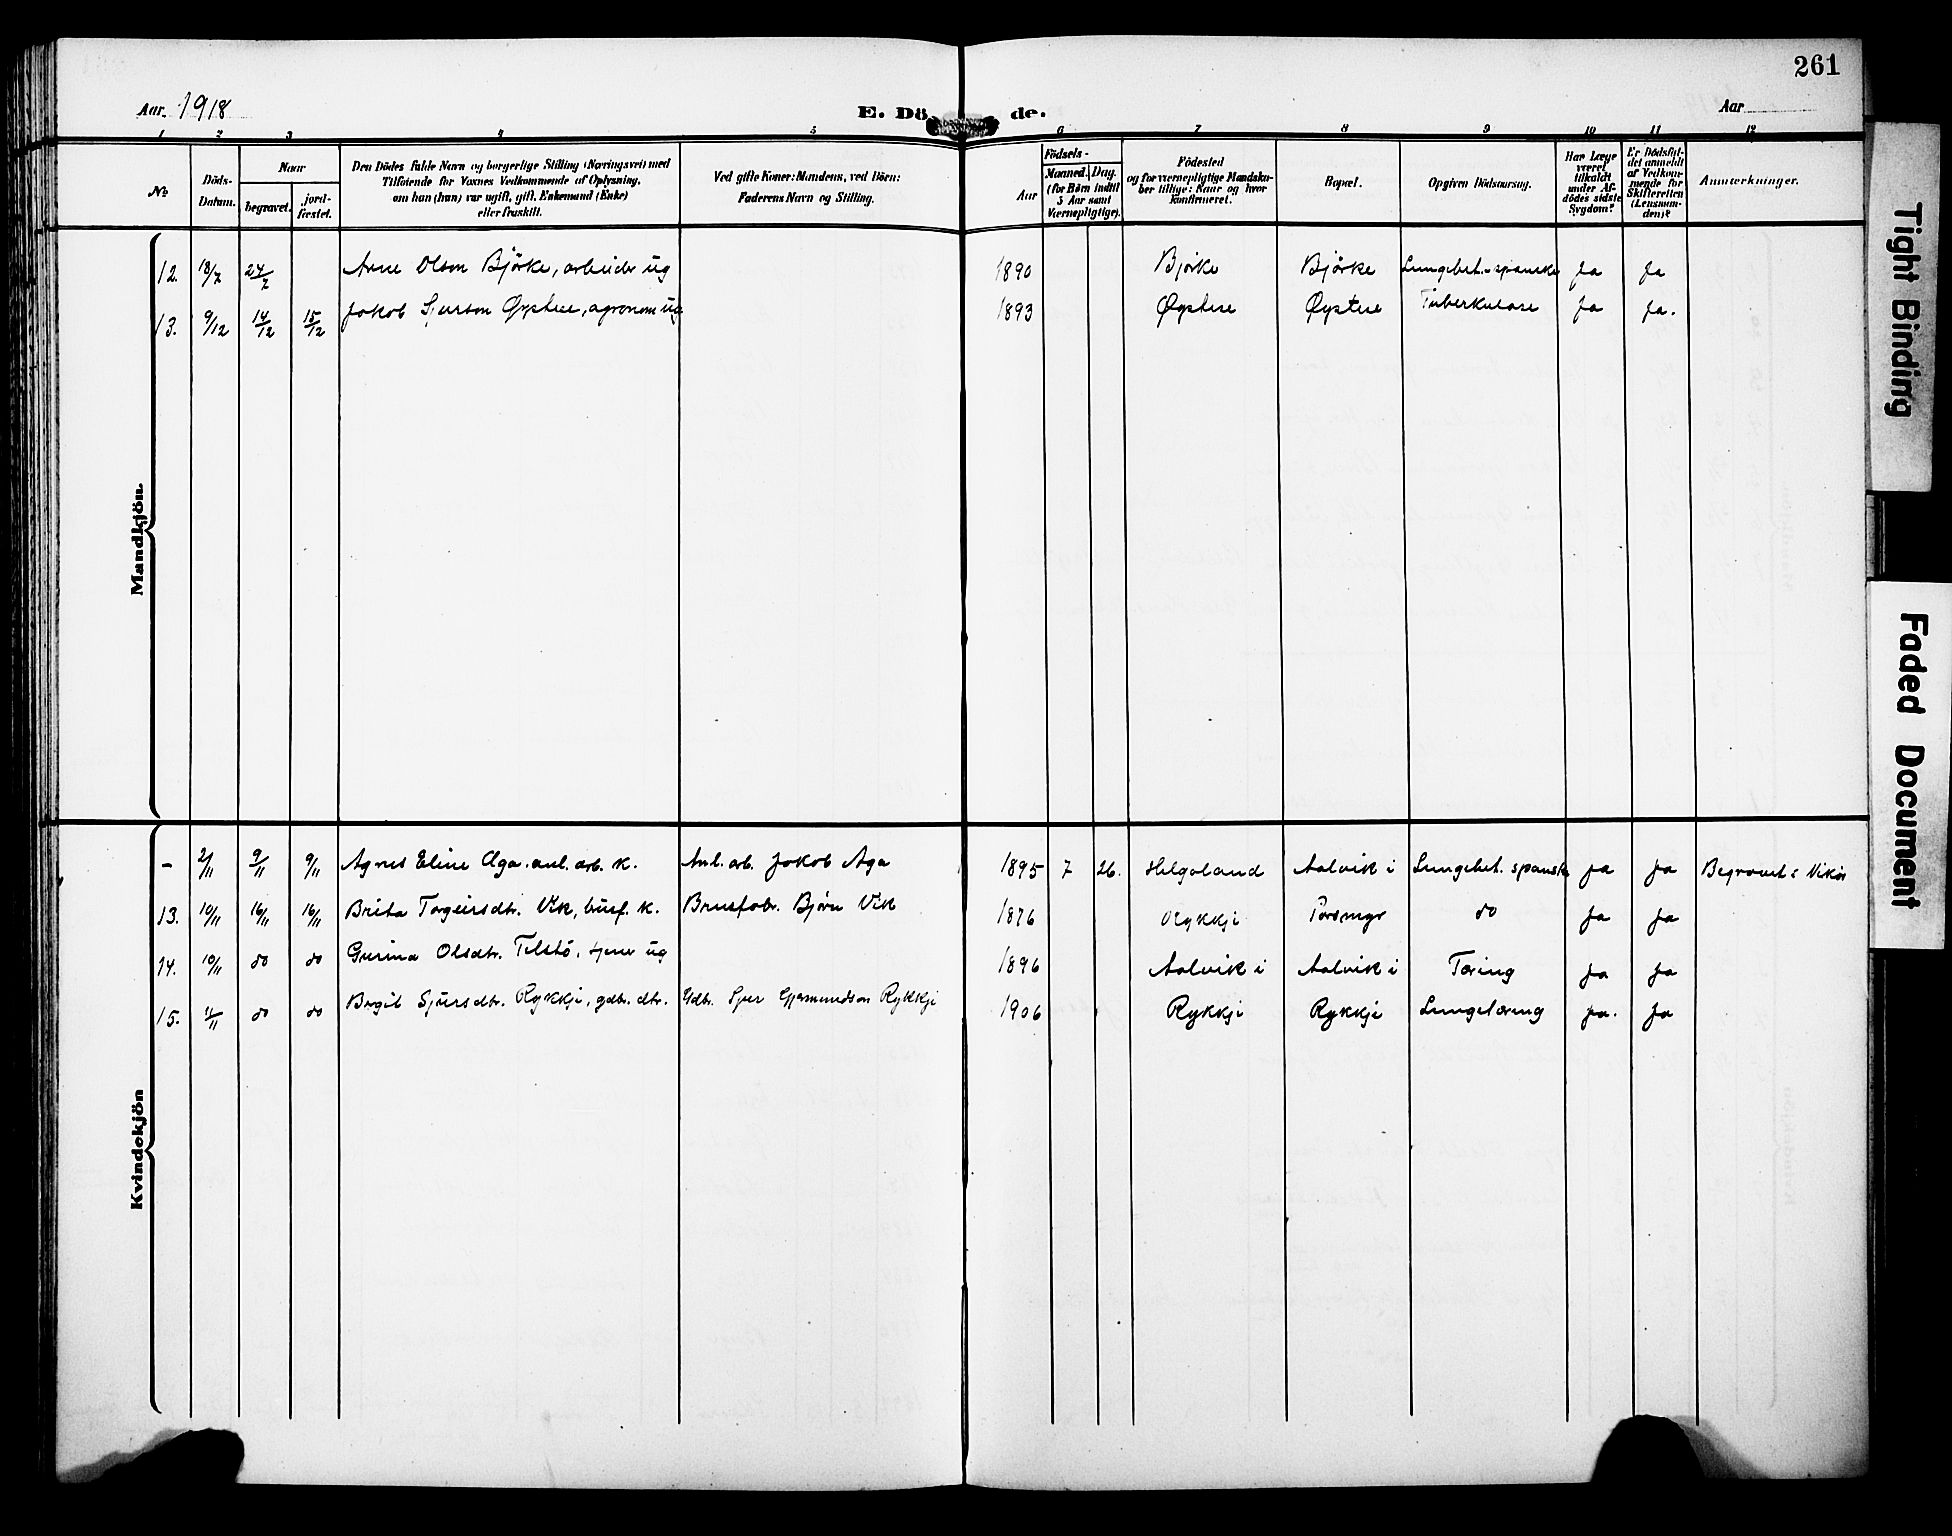 261
Aar. 1918 E. Dö de. Aar
1 2 3 4 5 6 7 8 9 10 11 12
No Döds-Datum. Naar begravet. jordfæstet. Den Dödes fulde Navn og borgerlige Stilling (Næringsvei) med Tilföiende for Voxnes Vedkommende af Oplysning, om han (hun) var ugift, gift, Enkemand (Enke) eller fraskilt. Ved gifte Koner: Mandens, ved Börn: Faderens Navn og Stilling. Aar Födsels- Maaned. Dag. (for Börn indtil 5 Aar samt Værnepligtige). Födested og for værnepligtige Mandskaber tillige: Naar og hvor konfirmeret. Bopæl. Opgiven Dödsaarsag. Har Læge været tilkaldt under Afdödes sidste Sygdom? Er Dödsfaldet anmeldt af Vedkommende for Skifteretten (Lensmanden)? Anmærkninger.
Mandkjön.
12. 18/7 24/7 Arne Olson Bjørke, arbeider ug 1890 Bjørke Bjørke Lungebet. spanske Ja Ja
13. 9/12 14/12 15/12 Jakob Sjurson Øystese, agronom ug 1893 Øystese Øystese Tuberkulose Ja Ja.
Kvindekjön
- 2/11 9/11 9/11 Agnes Eline Aga. anl. arb. k. Anl. arb. Jakob Aga 1895 7 26. Helgoland Aalvik i Lungebet. spanske Ja Ja Begravet i Vikør
13. 10/11 16/11 16/11 Brita Torgeirsdtr. Vik, husf. k. Brusfabr. Bjørn Vik 1876 Rykkji do Ja Ja
14. 10/11 do do Gurina Olsdtr. Telstø, tjener ug 1896 Aalvik i Aalvik i Tæring Ja Ja
15. 11/11 do do Brgit Sjursdtr. Rykkji, gdbr. dtr. Gdbr. Sjur Gjermundson Rykkji 1906 Rykkji Rykkji Lungetæring Ja. Ja
Tight Binding
Faded Document